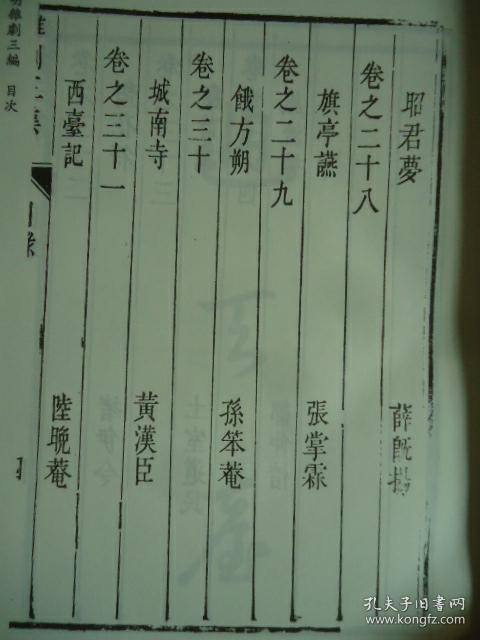 昭君夢 薛既揚
卷之二十八
旗亭讌 張掌霖
卷之二十九
餓方朔 孫笨菴
卷之三十
城南寺 黃漢臣
卷之三十一
西臺記 陸晚菴
目錄
明雜劇三編 目次
孔夫子旧书网
www.kongfz.com